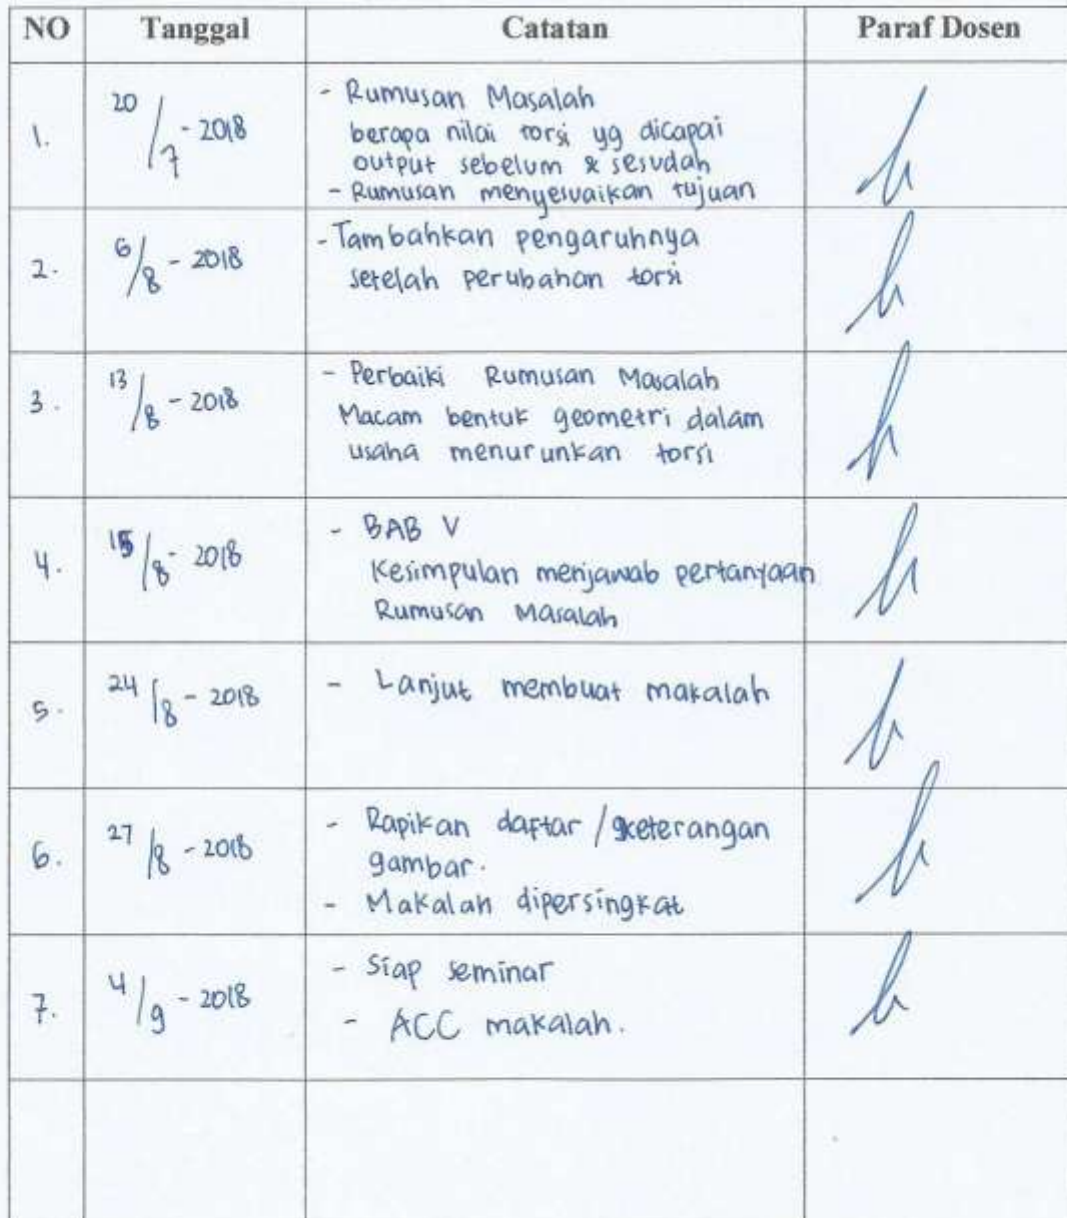 NO Tanggal Catatan Paraf Dosen
1. 20/7 - 2018 - Rumusan Masalah
berapa nilai torsi yg dicapai
output sebelum & sesudah
- Rumusan menyesuaikan tujuan
2. 6/8 - 2018 - Tambahkan pengaruhnya
setelah perubahan torsi
3. 13/8 - 2018 - Perbaiki Rumusan Masalah
Macam bentuk geometri dalam
usaha menurunkan torsi
4. 15/8 - 2018 - BAB V
Kesimpulan menjawab pertanyaan
Rumusan Masalah
5. 24/8 - 2018 - Lanjut membuat makalah
6. 27/8 - 2018 - Rapikan daftar / keterangan
gambar.
- Makalah dipersingkat
7. 4/9 - 2018 - Siap seminar
- ACC makalah.